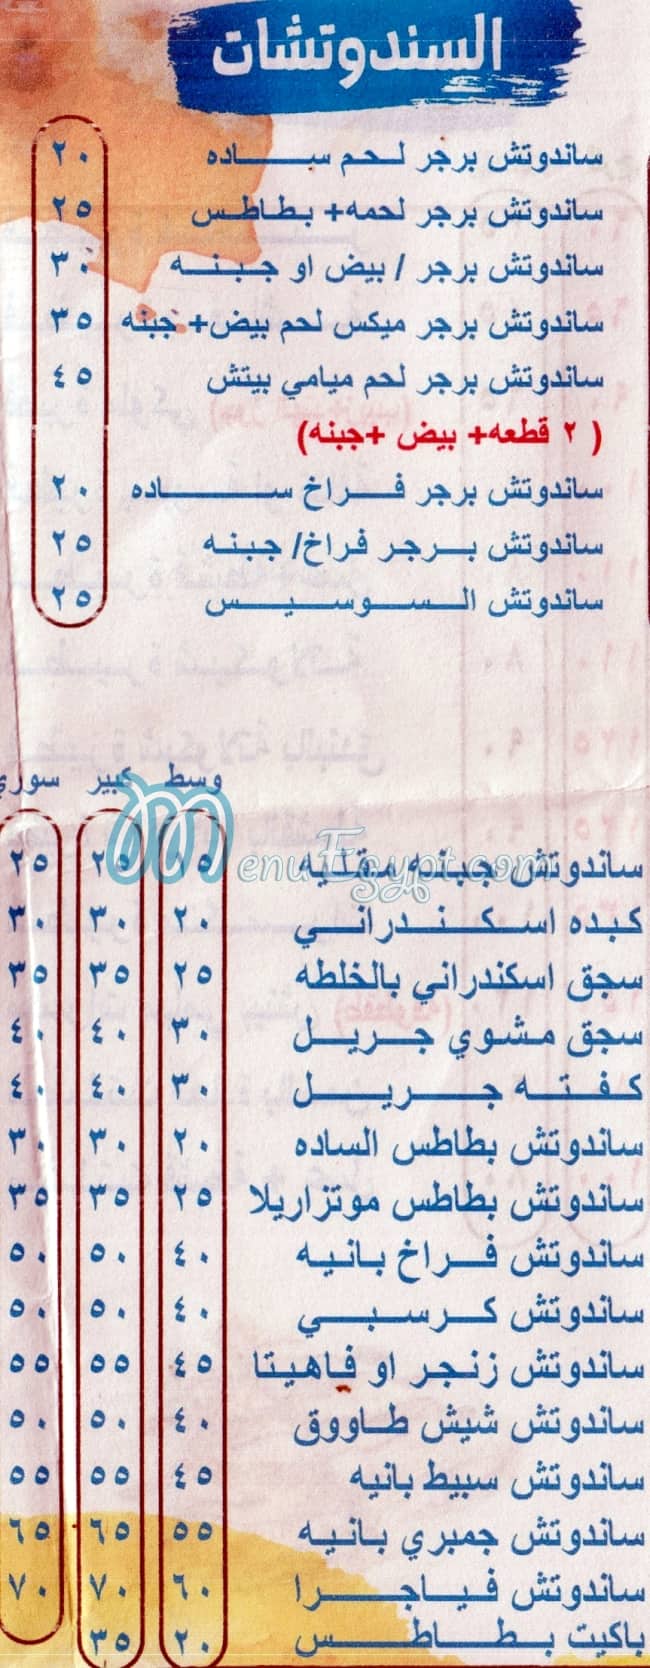 السندوتشات
ساندوتش برجر لحم ساده ٢٠
ساندوتش برجر لحمه+ بطاطس ٢٥
ساندوتش برجر / بيض او جبنه ٣٠
ساندوتش برجر ميكس لحم بيض+ جبنه ٣٥
ساندوتش برجر لحم ميامي بيتش ٤٥
( ٢ قطعه+ بيض +جبنه)
ساندوتش برجر فراخ ساده ٢٠
ساندوتش برجر فراخ/ جبنه ٢٥
ساندوتش السوسيس ٢٥
وسط كبير سوري
MenuEgypt.com
ساندوتش جبنه مقليه ١٥ ٢٥ ٢٥
كبده اسكندراني ٢٠ ٣٠ ٣٠
سجق اسكندراني بالخلطه ٢٥ ٣٥ ٣٥
سجق مشوي جريل ٣٠ ٤٠ ٤٠
كفته جريل ٣٠ ٤٠ ٤٠
ساندوتش بطاطس الساده ٢٠ ٣٠ ٣٠
ساندوتش بطاطس موتزاريلا ٢٥ ٣٥ ٣٥
ساندوتش فراخ بانيه ٤٠ ٥٠ ٥٠
ساندوتش كرسبي ٤٠ ٥٠ ٥٠
ساندوتش زنجر او فاهيتا ٤٥ ٥٥ ٥٥
ساندوتش شيش طاووق ٤٠ ٥٠ ٥٠
ساندوتش سبيط بانيه ٤٥ ٥٥ ٥٥
ساندوتش جمبري بانيه ٥٥ ٦٥ ٦٥
ساندوتش فياجرا ٦٠ ٧٠ ٧٠
باكيت بطاطس ٢٠ ٣٥